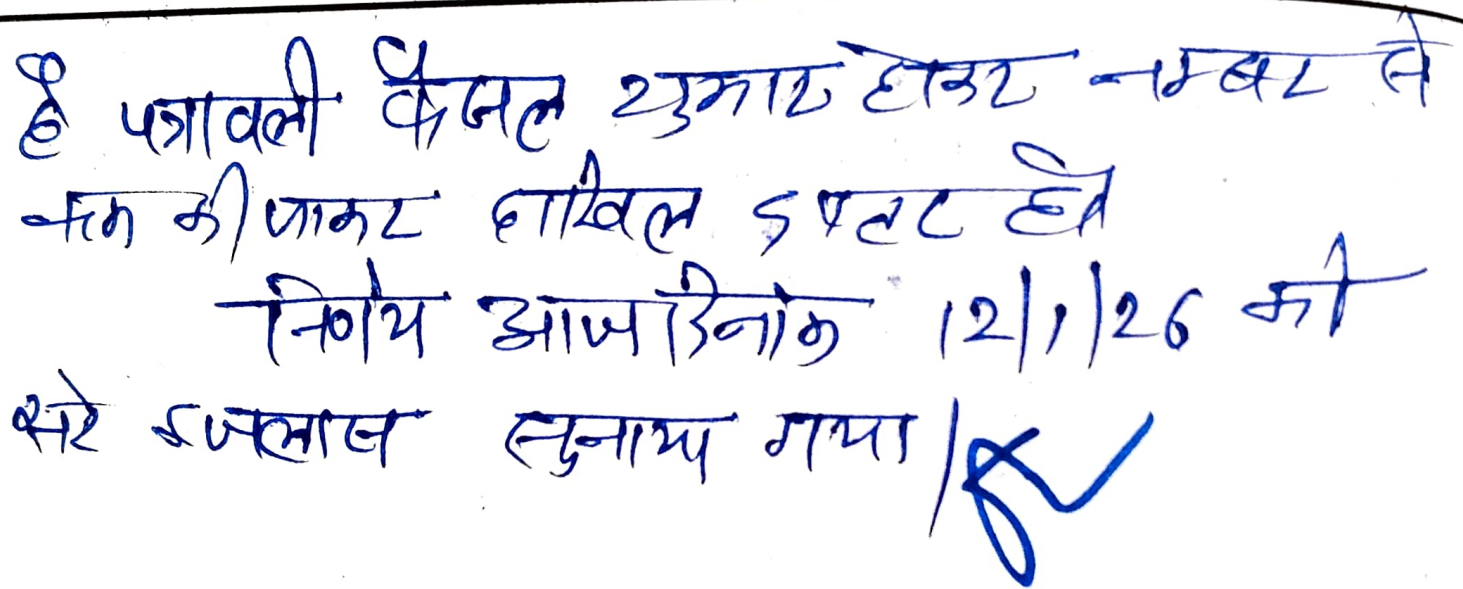 है पत्रावली फैसल शुमार होकर नम्बर से
कम की जाकर दाखिल दफ्तर हो
निर्णय आज दिनांक 12/1/26 को
सरे इजलास सुनाया गया।